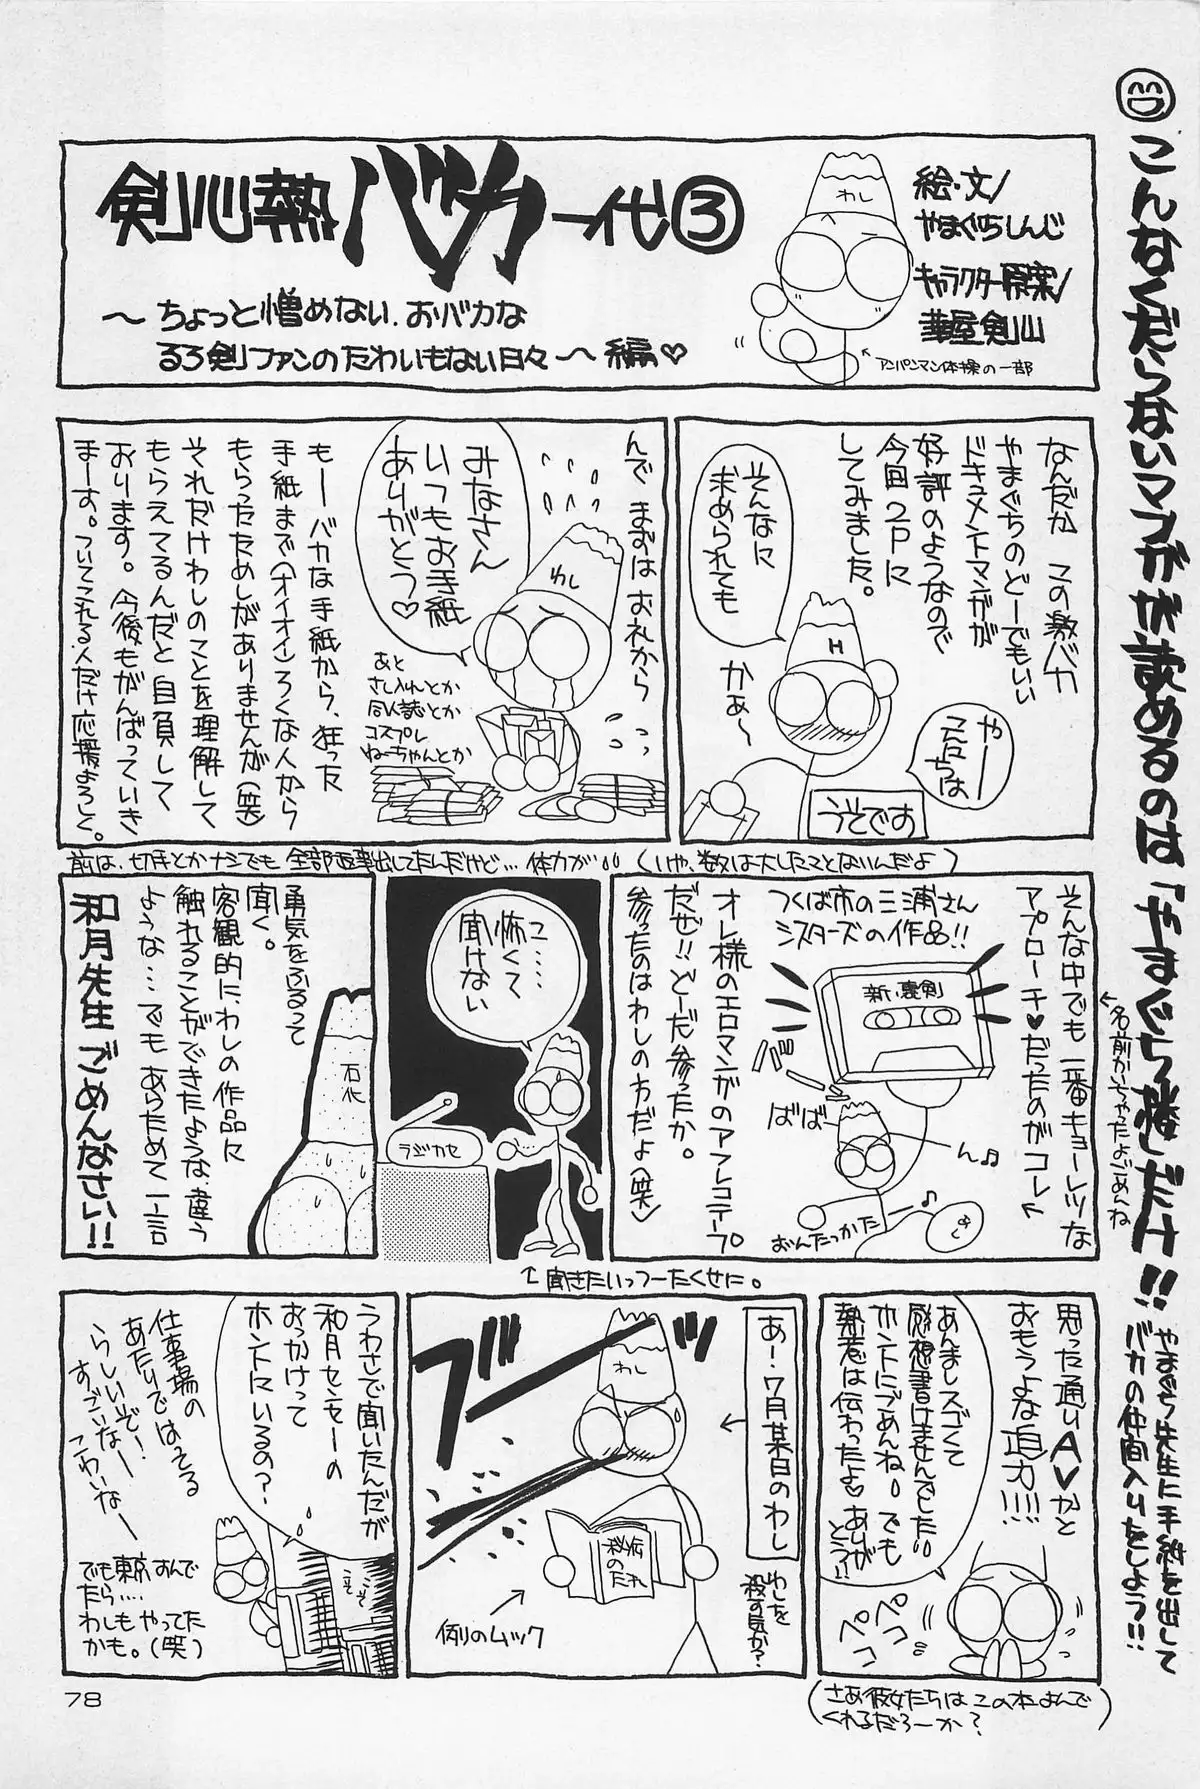 こんなくだらないマンガが読めるのは「やまぐち捲しだけ!!
やまぐち先生に手紙を出して
バカの仲間入りをしよう!!
剣心熱バカ一代③
〜ちょっと憎めない、おバカな
るろ剣ファンのたわいもない日々〜編♡
絵・文/
やまぐちしんじ
キャラクター原案/
華屋剣山
わし
アンパンマン体操の一部
なんだか この激バカ
やまぐちのどーでもいい
ドキュメントマンガが
好評のようなので
今回2Pに
してみました。
そんなに
求められても
かぁ〜
やー
こにちは
H
うそです
んで まずは お礼から
みなさん
いつもお手紙
ありがとう♡
わし
あと
さし入れとか
同人誌とか
コスプレ
ねーちゃんとか
もーバカな手紙から、狂った
手紙まで(オイオイ)ろくな人から
もらったためしがありませんが(笑)
それだけわしのことを理解して
もらえてるんだと自負して
おります。今後もがんばっていき
まーす。ついてこれる人だけ応援よろしく。
前は、切手とかナシでも 全部返事出してたんだけど… 体力が
(いや、数は大したことないんだよ)
そんな中でも 一番キョーレツな
アプローチ♥だったのがコレ
←名前かいちゃったよごめんね
つくば市の三浦さん
シスターズの作品!!
新・裏剣
バーン
ばば
ん♪
おんたっかた
あし
オレ様のエロマンガのアフレコテープ
だぜ!!どーだ参ったか。
参ったのはわしの方だよ(笑)
こ…
怖くて
聞けない
ラジカセ
↑聞きたいっつーたくせに。
勇気をふるって
聞く。
客観的に、わしの作品に
触れることができたような、違う
ような… でも あらためて 一言
和月先生 ごめんなさい!!
石化
思った通りAVかと
おもうよな迫力!!!!
あんまりスゴくて
感想書けませんでした
ホントにごめんね。でも
熱意は伝わったよ♡ありが
とう!?
ペコ
ペコ
(さあ彼女たちは この本よんで
くれるだろーか?)
あー、7月某日のわし
わし
ブーッ
秘伝
のたれ
例のムック
わしを
殺す気か?
うわさで聞いたんだが
和月センセーの
おっかけって
ホントにいるの?
仕事場の
あたりではってる
らしいぞ!
すごいなー
こわいなー
でも東京すんで
たら…
わしも やってた
かも。(笑)
78